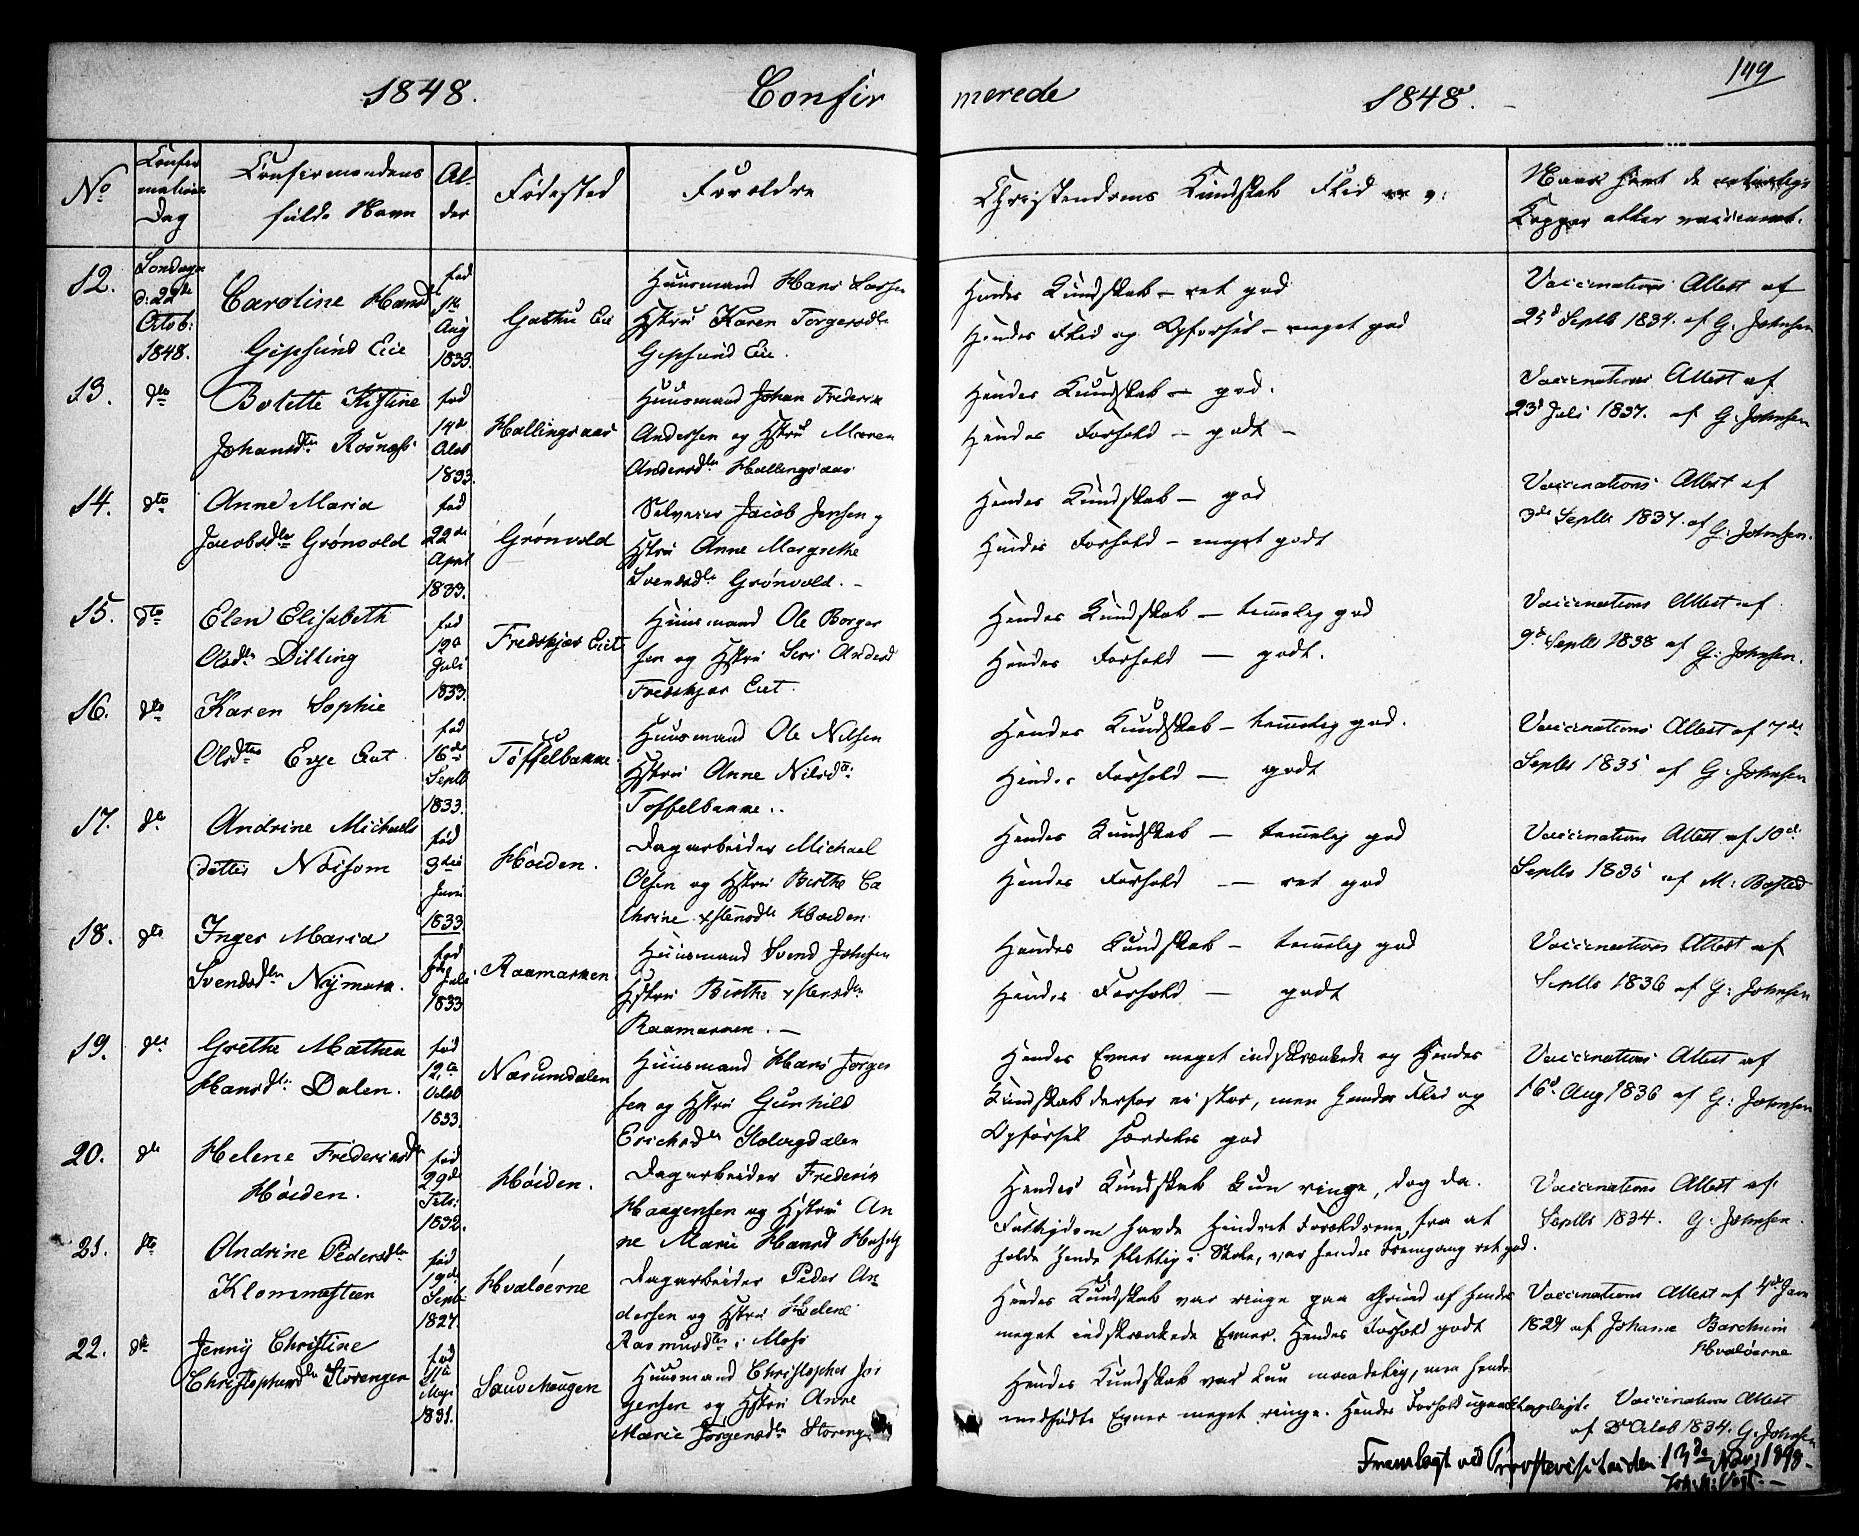 149
1848. Confir
merede 1848.
No
Confir
mations
Dag
Confirmandens
fulde Navn
Al-
der
Fødested
Forældre
Christendoms Kundskab Flid
Kopper eller vaccineret.
12.
Søndagen
d: 22de
Octob:
1848.
Caroline Hansd
Gipsund Eie
fød
Aug
1833.
Huusmand Hans Larsen
Hstru Karen Torgersdtr
Gipsund Eie.
Hendes Kundskab – ret god
Hendes Flid og Opførsel – meget god
Vaccinations Attest af
23d Septb 1834. af G. Johnsen
13.
dto
Bolette Kistine
Johansdtr
fød
14de
Octob
1833.
Hallingsaas
Huusmand Johan Frederik
Andersen og Hstru Maren
Andersdtr Hallingsaas
Hendes Kundskab – god.
Hendes Forhold – godt –
Vaccinations Attest af
23d Juli 1837. af G. Johnsen
14.
dto
Anne Maria
Jacobsdtr Grønvold
fød
22de
April
1833.
Grønvold
Selveier Jacob Jensen og
Hstru Anne Margrethe
Svendsdtr Grønvold. –
Hendes Kundskab – god
Hendes Forhold – meget godt
Vaccinations Attest af
3de Septb 1837 af G. Johnsen.
15.
dto
Elen Elisabeth
Olsdtr Dilling
fød
19de
Juli
1833.
Fredskjær Eiet
Huusmand Ole Borger
sen og Hstru Siri Andersd
Fredskjær Eiet.
Hendes Kundskab – temmelig god
Hendes Forhold – godt.
Vaccinations Attest af
9d Septb 1838 af G. Johnsen.
16.
dto
Karen Sophie
Olsdtr Eie Eiet
fød
16de
Septb
1833.
Tøffelbakke
Huusmand Ole Nilsen
Hstru Anne Nilsdtr
Toffelbakke.
Hendes Kundskab – temmelig god.
Hendes Forhold – godt
Vaccinations Attest af 7de
Septb 1835 af G. Johnsen
17.
do
Andrine Michaels
datter Nøisom
fød
3die
Juni
1833
Høiden.
Dagarbeider Michael
Olsen og Hstru Birthe Ca
thrine Høiden
Hendes Kundskab – temmelig god
Hendes Forhold – ret god
Vaccinations Attest af 10de
Septb 1835 af M. Basted
18.
dto
Inger Maria
Svendsdtr Nymark.
fød
Juli
1833
Raamarken
Huusmand Svend Johnsen
Hstru Birthe
Raamarken. –
Hendes Kundskab – temmelig god
Hendes Forhold – godt
Vaccinations Attest af
Septb 1836 af G. Johnsen
19.
dto
Grethe Mathea
Hansdtr Dalen.
fød
12te
Octob
1833.
Næsumdalen
Huusmand Hans Jørgen
sen og Hstru Gunhild
Erichsdtr
Hendes Evner meget indskrænkede og Hendes
Kundskab derfor ei stor, men Hendes Flid og
Opførsel særdeles god
Vaccinations Attest af
16d. Aug 1836 af G. Johnsen
20.
dto
Helene Frederiksdtr
Høiden.
fød
29de
Febr:
1832.
Høiden.
Dagarbeider Frederik
Haagensen og Hstru An
ne Marie Hansd
Hendes Kundskab kun ringe, dog da
Fattigdom havde hindret Forældrene fra at
holde hende flittig i Skole, var hendes Fremgang ret god.
Vaccinations Attest af
Septb 1834. G. Johnsen.
21.
dto
Andrine Pedersdtr
Klommesteen
fød
19de
Septb
1827.
Hvaløerne
Dagarbeider Peder An
dersen og Hstru Helene
Rasmusdtr i Moss
Hendes Kundskab var ringe paa Grund af hendes
meget indskrænkede Evner. Hendes Forhold godt
Vaccinations Attest af
af Johanne
Hvaløerne
22.
dto
Jenny Christine
Christophersdtr Storengen
fød
Maji
1831.
Sauehaugen
Huusmand Christopher Jør
gensen og Hstru Anne
Marie Jørgensdtr Storeng
Hendes Kundskab var kun maadelig, men hendes
medfødte Evner meget ringe. Hendes Forhold upaaklageligt.
Vaccinations Attest
af Octob 1834. G. Johnsen
Fremlagt ved Provstevisitatsen 13de Nov: 1848